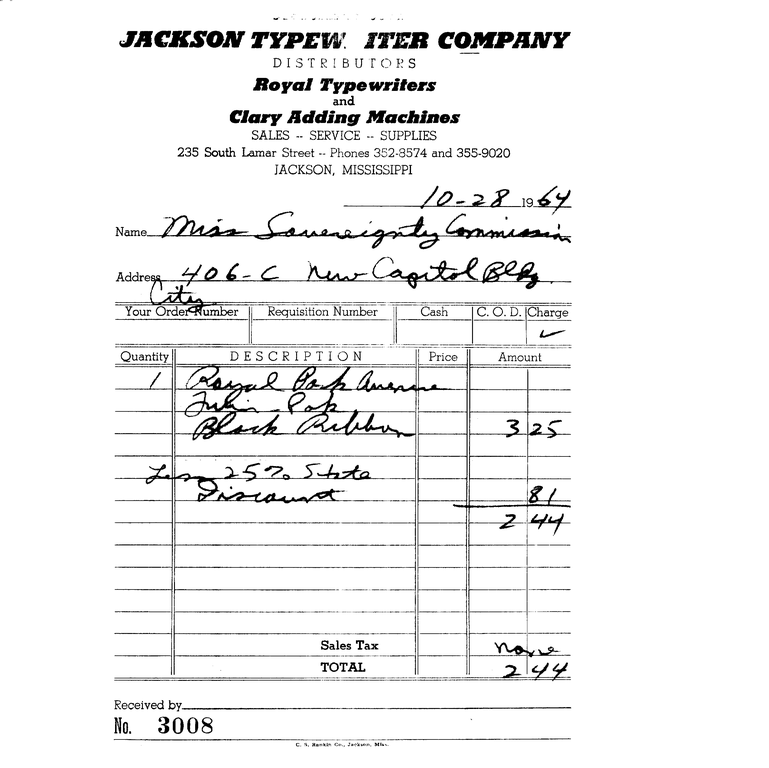 JACKSON TYPEW ITER COMPANY
DISTRIBUTORS
Royal Typewriters
and
Clary Adding Machines
SALES -- SERVICE -- SUPPLIES
235 South Lamar Street -- Phones 352-8574 and 355-9020
JACKSON, MISSISSIPPI
10-28 1964
Name Miss Sovereignty Commission
Address 406-C New Capitol Bldg.
City
Your Order Number Requisition Number Cash C. O. D. Charge
✓
Quantity DESCRIPTION Price Amount
1 Royal Park Avenue
Pak
Black Ribbon 3 25
Less 25% State
Discount 81
2 44
Sales Tax none
TOTAL 2 44
Received by
No. 3008
C. N. Rankin Co., Jackson, Miss.